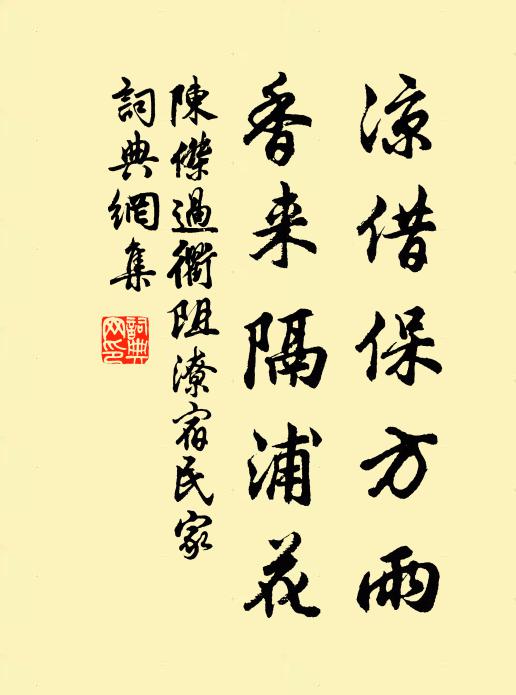 凉借保方雨
香来隔浦花
陳傑過衢阻潦宿民家
詞典網集
詞典网印